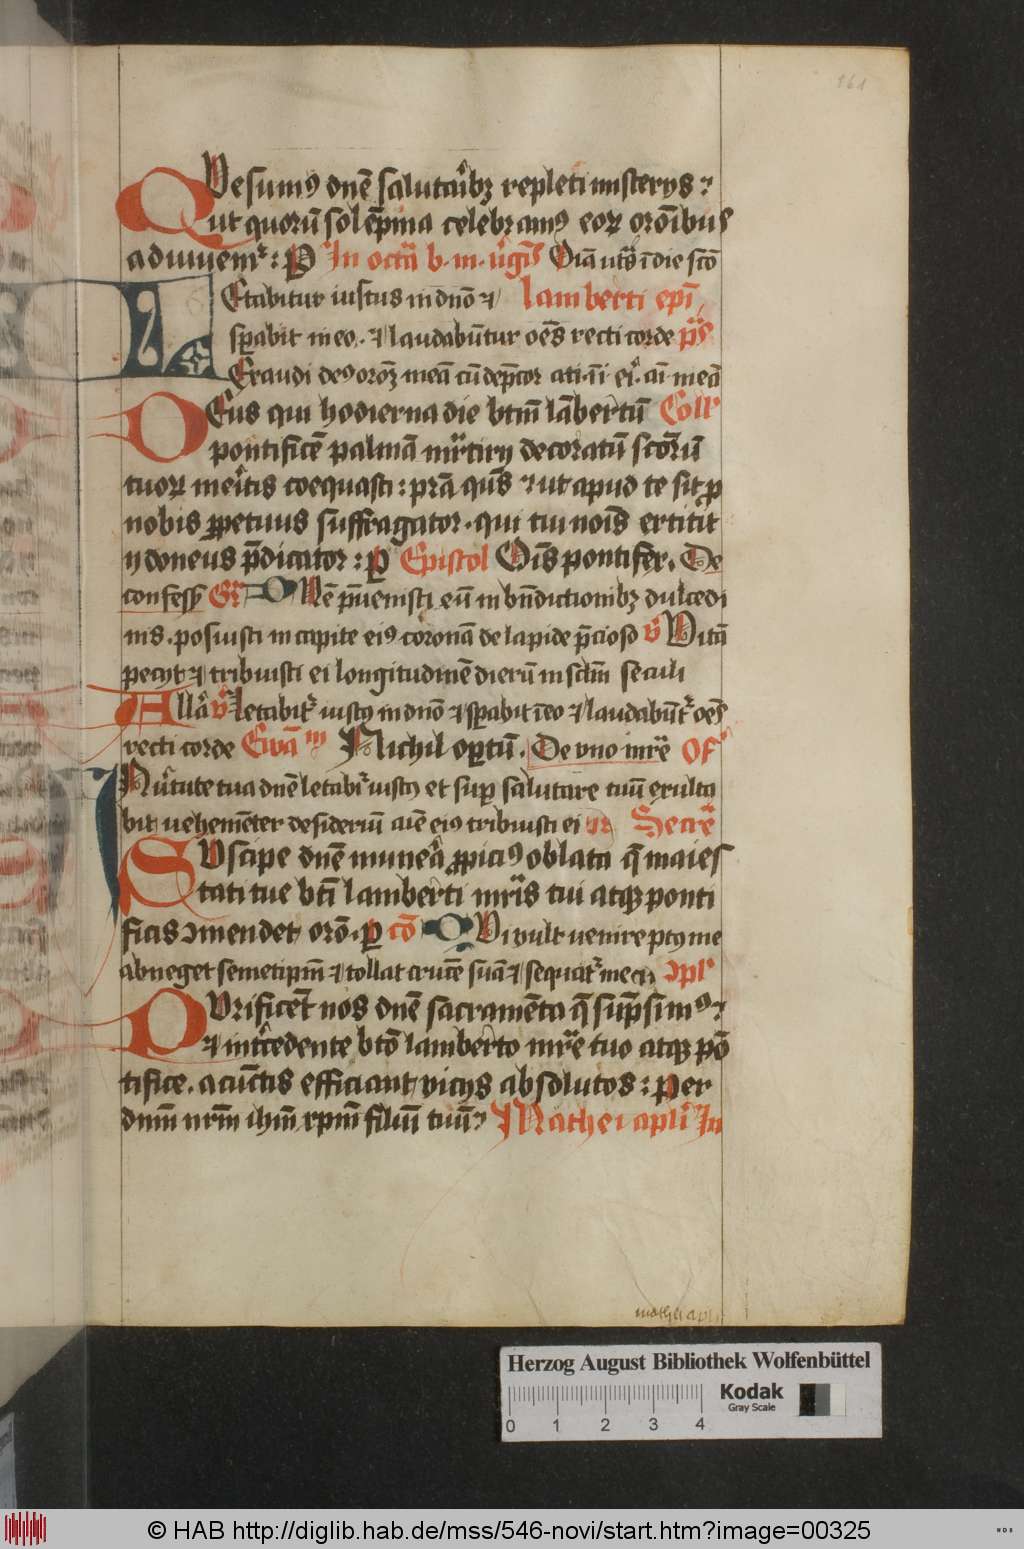 161
QVesumꝰ dnē salutaͥbꝫ repleti misterys ⁊
ut quorū solēpnia celebramꝰ eoꝝ orōibus
adiuuemᷣ : P In octa b m ūgīs Oīa utš ī die scō
LEtabitur iustus in dnō ⁊ lamberti epī
spabit in eo ⁊ laudabūtur oēs recti corde ps
Exaudi deꝰ oroꝫ meā cū dep̄cor a ti īi eiͥ aī meā
DEus qui hodierna die btm̄ lābertū Coll
pontificē palmā mr̄tiry decoratū scōrū
tuoꝝ meͥtis coequasti : prā qūs ⁊ ut apud te sit p̄
nobis ꝑpetuus suffragator qui tui nois̄ extitit
ydoneus p̄dicator : ꝑ Epistol Oīs pontifex De
confess Gr̄ DNē p̄uenisti eū in bn̄dictionibꝫ dulcedi
nis posuisti in capite eiꝰ coronā de lapide p̄cioso v̄ Vitā
pecyt ⁊ tribuisti ei longitudinē dierū in sclm̄ seculi
Allā v̄ letabitᷣ iustꝰ in dnō ⁊ spabit ī eo ⁊ laudabūtᷣ oēs
recti corde Ewā Nichil optū De vno mr̄e Of
IN ūtute tua dnē letabiᷣ iustꝰ et suꝑ salutare tuū exulta
bit vehemēter desideriū aīe eiꝰ tribuisti ei Secre
SVscipe dnē muneͣ ꝓpiciꝰ oblata q̄ maies
tati tue bti lamberti mr̄is tui atqꝫ ponti
ficis ɔmendet orō ꝑ cō QVi vult venire pꝰ me
abneget semetipm̄ ⁊ tollat crucē suā ⁊ sequatᷣ me ɔpl
PVrificēt nos dnē sacramēta q̄ sūpsimꝰ ⁊
⁊ int̄cedente btō lamberto mr̄e tuo atqꝫ pō
tifice a cūctis efficiant vicys absolutos : Per
dnm̄ nr̄m ihm̄ xpm̄ filiū tuū ⁊ Mathei apli In
mathei apli
Herzog August Bibliothek Wolfenbüttel
0 1 2 3 4
Kodak
Gray Scale
© HAB http://diglib.hab.de/mss/546-novi/start.htm?image=00325